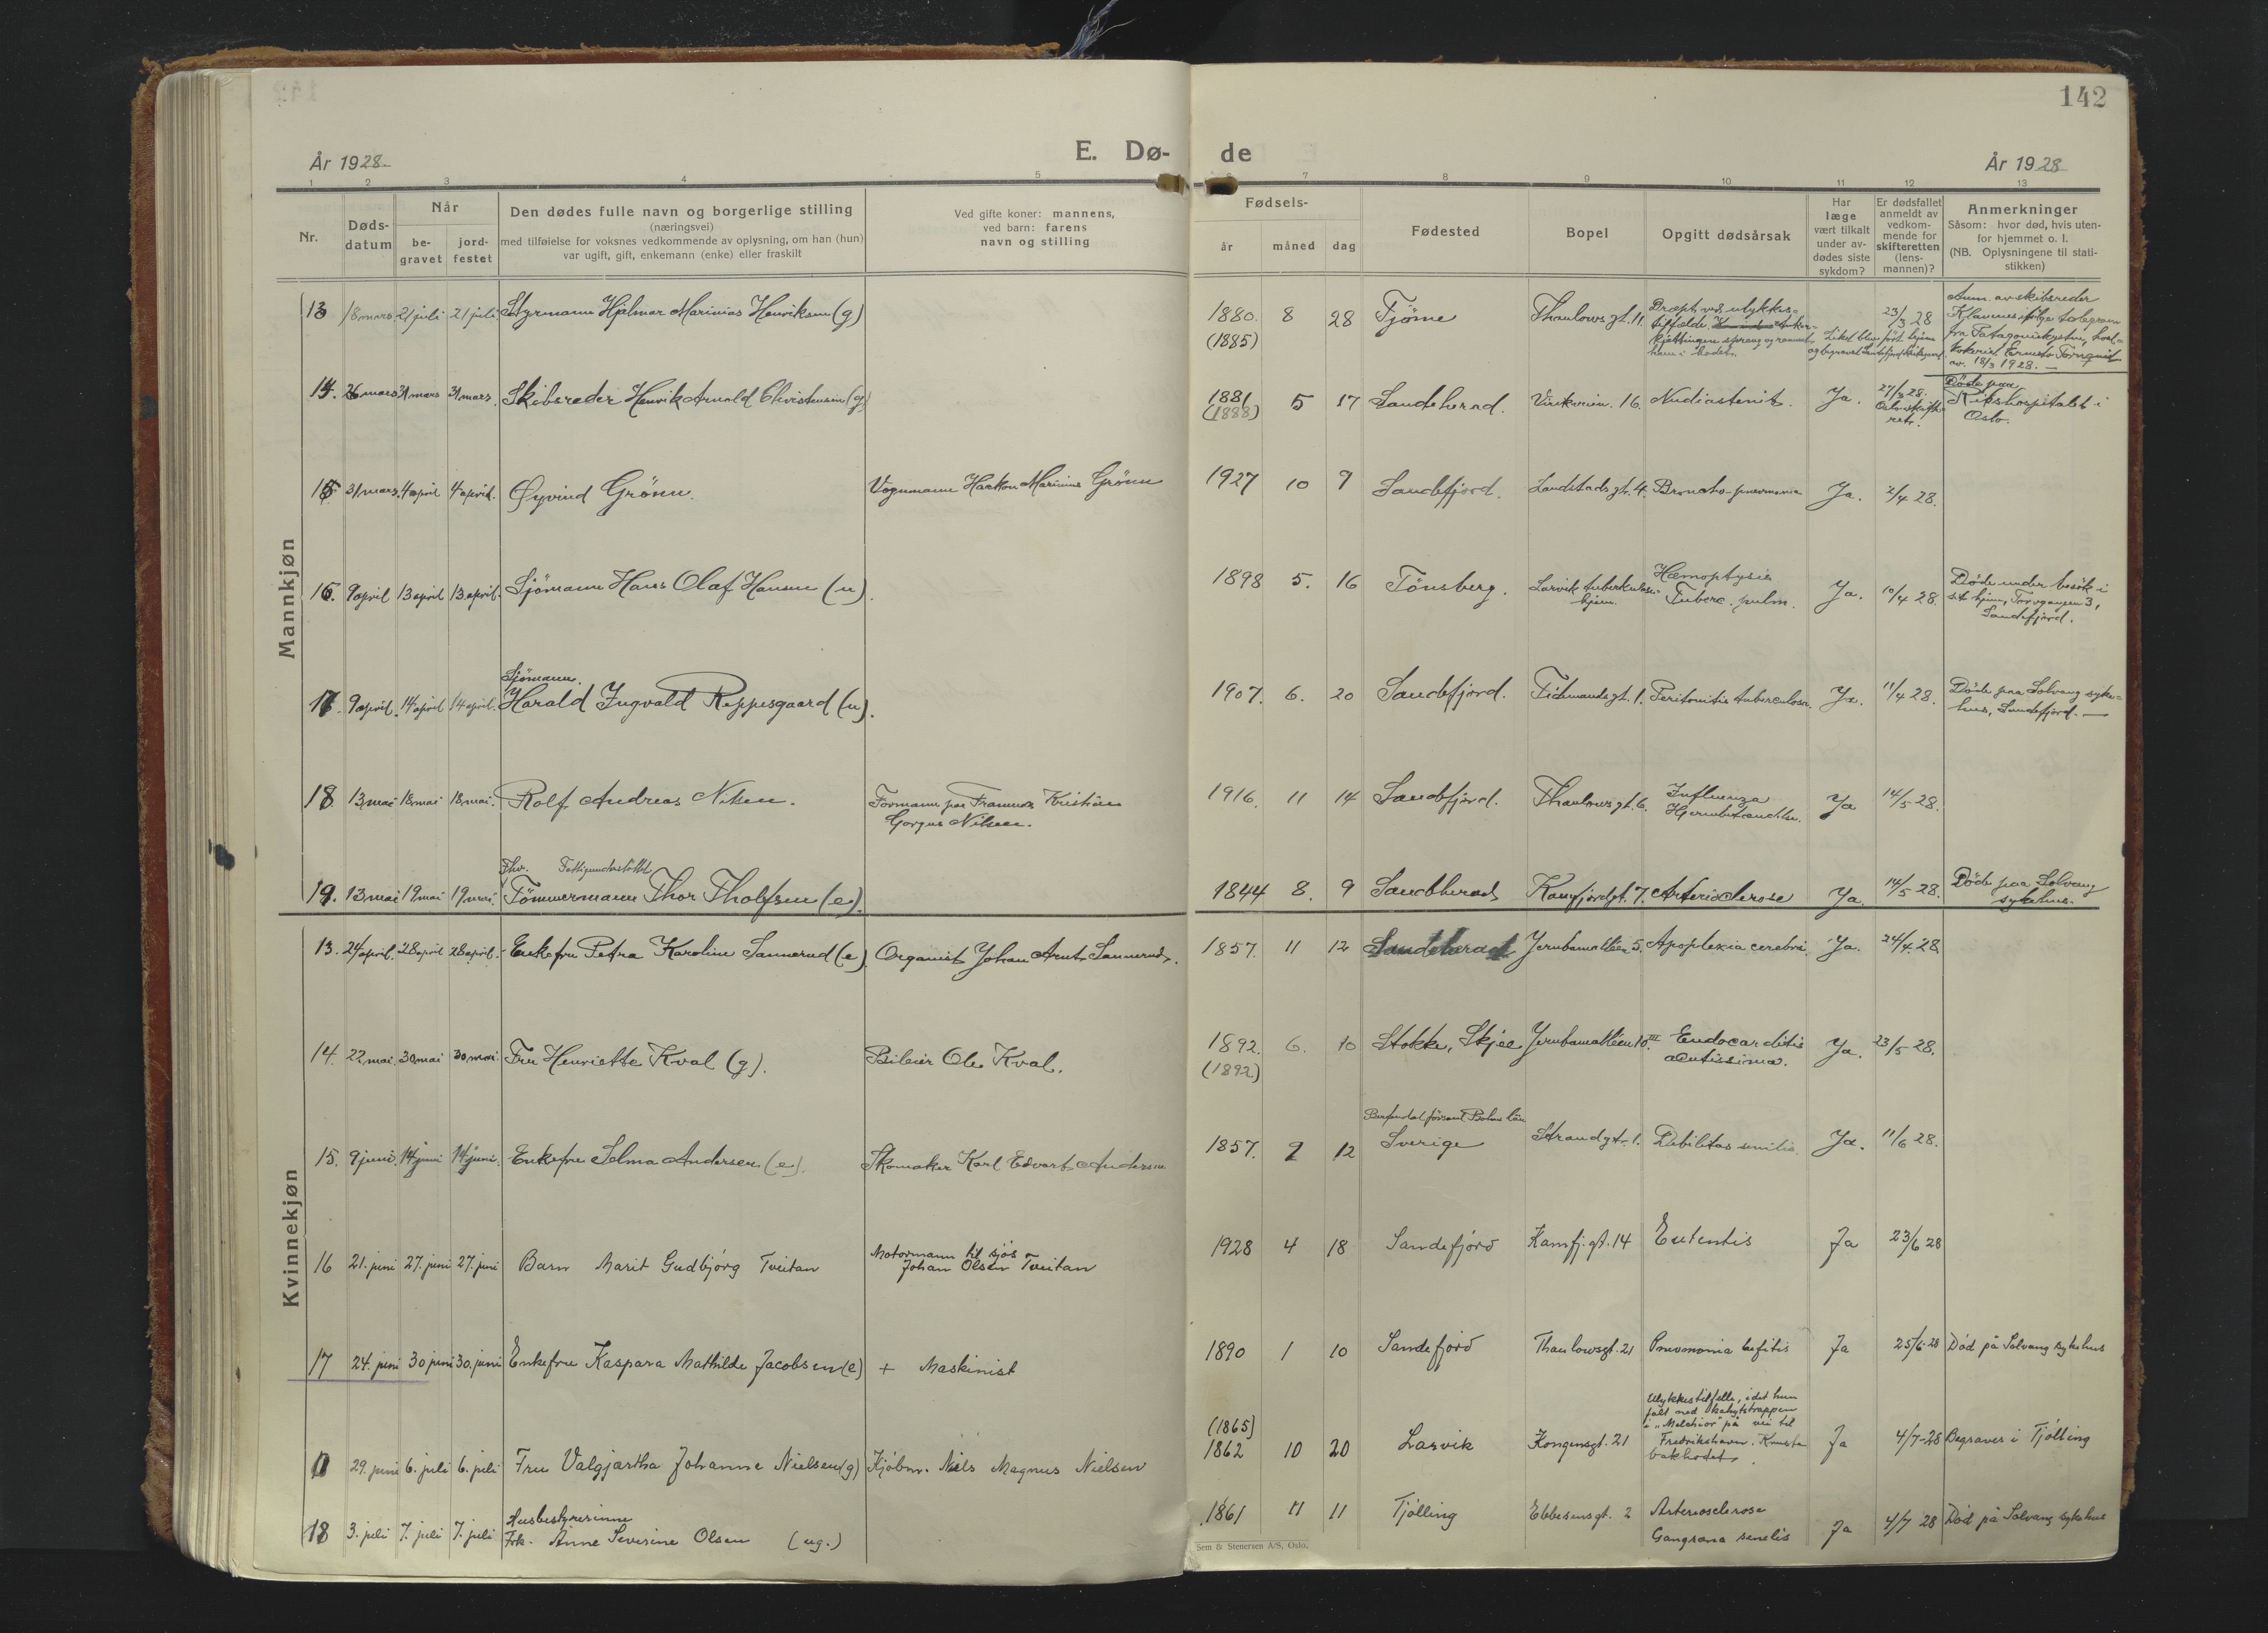 142
År 1928
E. Dø-
de
År 1928
1 2 3 4 5 7 8 9 10 11 12 13
Nr.
Døds-
datum
Når
be-
gravet
jord-
festet
Den dødes fulle navn og borgerlige stilling
(næringsvei)
med tilføielse for voksnes vedkommende av oplysning, om han (hun)
var ugift, gift, enkemann (enke) eller fraskilt
Ved gifte koner: mannens,
ved barn: farens
navn og stilling
Fødsels-
år måned dag
Fødested
Bopel
Opgitt dødsårsak
Har
læge
vært tilkalt
under av-
dødes siste
sykdom?
Er dødsfallet
anmeldt av
vedkom-
mende for
skifteretten
(lens-
mannen)?
Anmerkninger
Såsom: hvor død, hvis uten-
for hjemmet o. l.
(NB. Oplysningene til stati-
stikken)
Mannkjøn
13 18 mars 21 juli 21 juli Styrmann Hjalmar Marinius Henriksen (g) 1880 8 28 Tjöme Thaulows gt. 11. 23/3 28
(1885)
Dræpt ved ulykkes-
tilfælde. Anker-
kjættingen sprang og rammet
ham i hodet.
Liket blev ført hjem
Anm. av skibsreder
Klaveness ifölge telegram
fra Patagoniakysten,
kokeriet Ernesto Tornquist
av 18/3 1928. —
14. 26 mars 31 mars 31 mars. Skibsreder Henrik Arnold Christensen (g) 1881 5 17 Sandeherred. Virikveien. 16. Mediastenit. Ja. 27/3 28.
(1888)
Oslo skifte-
rett.
Döde paa
Rikshospitalet i
Oslo.
15. 31 mars. 4 april 4 april. Øyvind Grönn. Vognmann Haakon Marinius Grönn 1927 10 9 Sandefjord. Landstads gt. 4. Broncho-pneumonia Ja. 2/4 28.
16. 9 april 13 april 13 april. Sjömann Hans Olaf Hansen (u). 1898 5. 16 Tönsberg. Larvik tuberkulose-
hjem.
Hæmoptysis
Tuberc. pulm. Ja. 10/4 28.
Döde under besök i
sit hjem, Torvgangen 3,
Sandefjord.
Sjömann.
17. 9 april. 14 april 14 april. Harald Ingvald Reppesgaard (u). 1907. 6. 20 Sandefjord. Tidemands gt. 1. Peritonitis tuberculosa. Ja. 11/4 28. Döde paa Solvang syke-
hus, Sandefjord. —
18 13 mai 18 mai 18 mai. Rolf Andreas Nilsen. Formann paa Framnæs Kristian
Gorgus Nilsen.
1916. 11 14 Sandefjord. Thaulows gt. 6. Influenza
Hjernebetændelse. Ja 14/5 28.
Fhv. Fattigunderstöttet
19. 13 mai 19 mai 19 mai. Tömmermann Thor Tholfsen (e). 1844 8. 9 Sandeherred Kamfjordgt. 7. Arteriosclerose Ja. 14/5 28. Döde paa Solvang
sykehus.
Kvinnekjøn
13. 24 april. 28 april 28 april. Enkefru Petra Karoline Sannerud (e). Organist Johan Arnt Sannerud. 1857. 11 12 Sandeherad Jernbanealléen 5. Apoplexia cerebri Ja. 24/4 28.
14. 22 mai. 30 mai 30 mai. Fru Henriette Kval (g). Bileier Ole Kval. 1892. 6. 10 Stokke, Skjee Jernbanealléen 10 III Endocarditis
acutissima. Ja. 23/5 28.
(1892)
15. 9 juni. 14 juni 14 juni. Enkefru Selma Andersen (e). Skomaker Karl Edvart Andersen 1857. 2 12 Sverige Strandgt. 1. Debilitas senilis Ja. 11/6 28.
16 21. juni 27. juni 27. juni Barn Marit Gudbjørg Tveitan Motormann til sjøs
Johan Olsen Tveitan
1928 4 18 Sandefjord Kamfj. gt. 14 Ententis Ja 23/6 28
17 24. juni 30 juni 30. juni Enkefru Kaspara Mathilde Jacobsen (e) + Maskinist 1890 1 10 Sandefjord Thaulowsgt. 21 Pneumonia Ja 25/6-28 Død på Solvang sykehus
0 29. juni 6. juli 6. juli Fru Valgjærtha Johanne Nielsen (g) Kjøbm. Niels Magnus Nielsen (1865)
1862 10 20 Larvik Kongensgt. 21
Ulykkestilfelle, idet hun
falt ned kahytstrappen
i „Melchior" på vei til
Fredrikshavn. Knuste
bakhodet.
Ja 4/7-28 Begraves i Tjølling
Husbestyrerinne
18 3. juli 7. juli 7. juli Frk. Anne Severine Olsen (ug.) 1861 11 11 Tjølling Ebbesensgt. 2 Arteriosclerose
Gangræna senelis Ja 4/7 28 Død på Solvang sykehus
Sem & Stenersen A/S, Oslo.